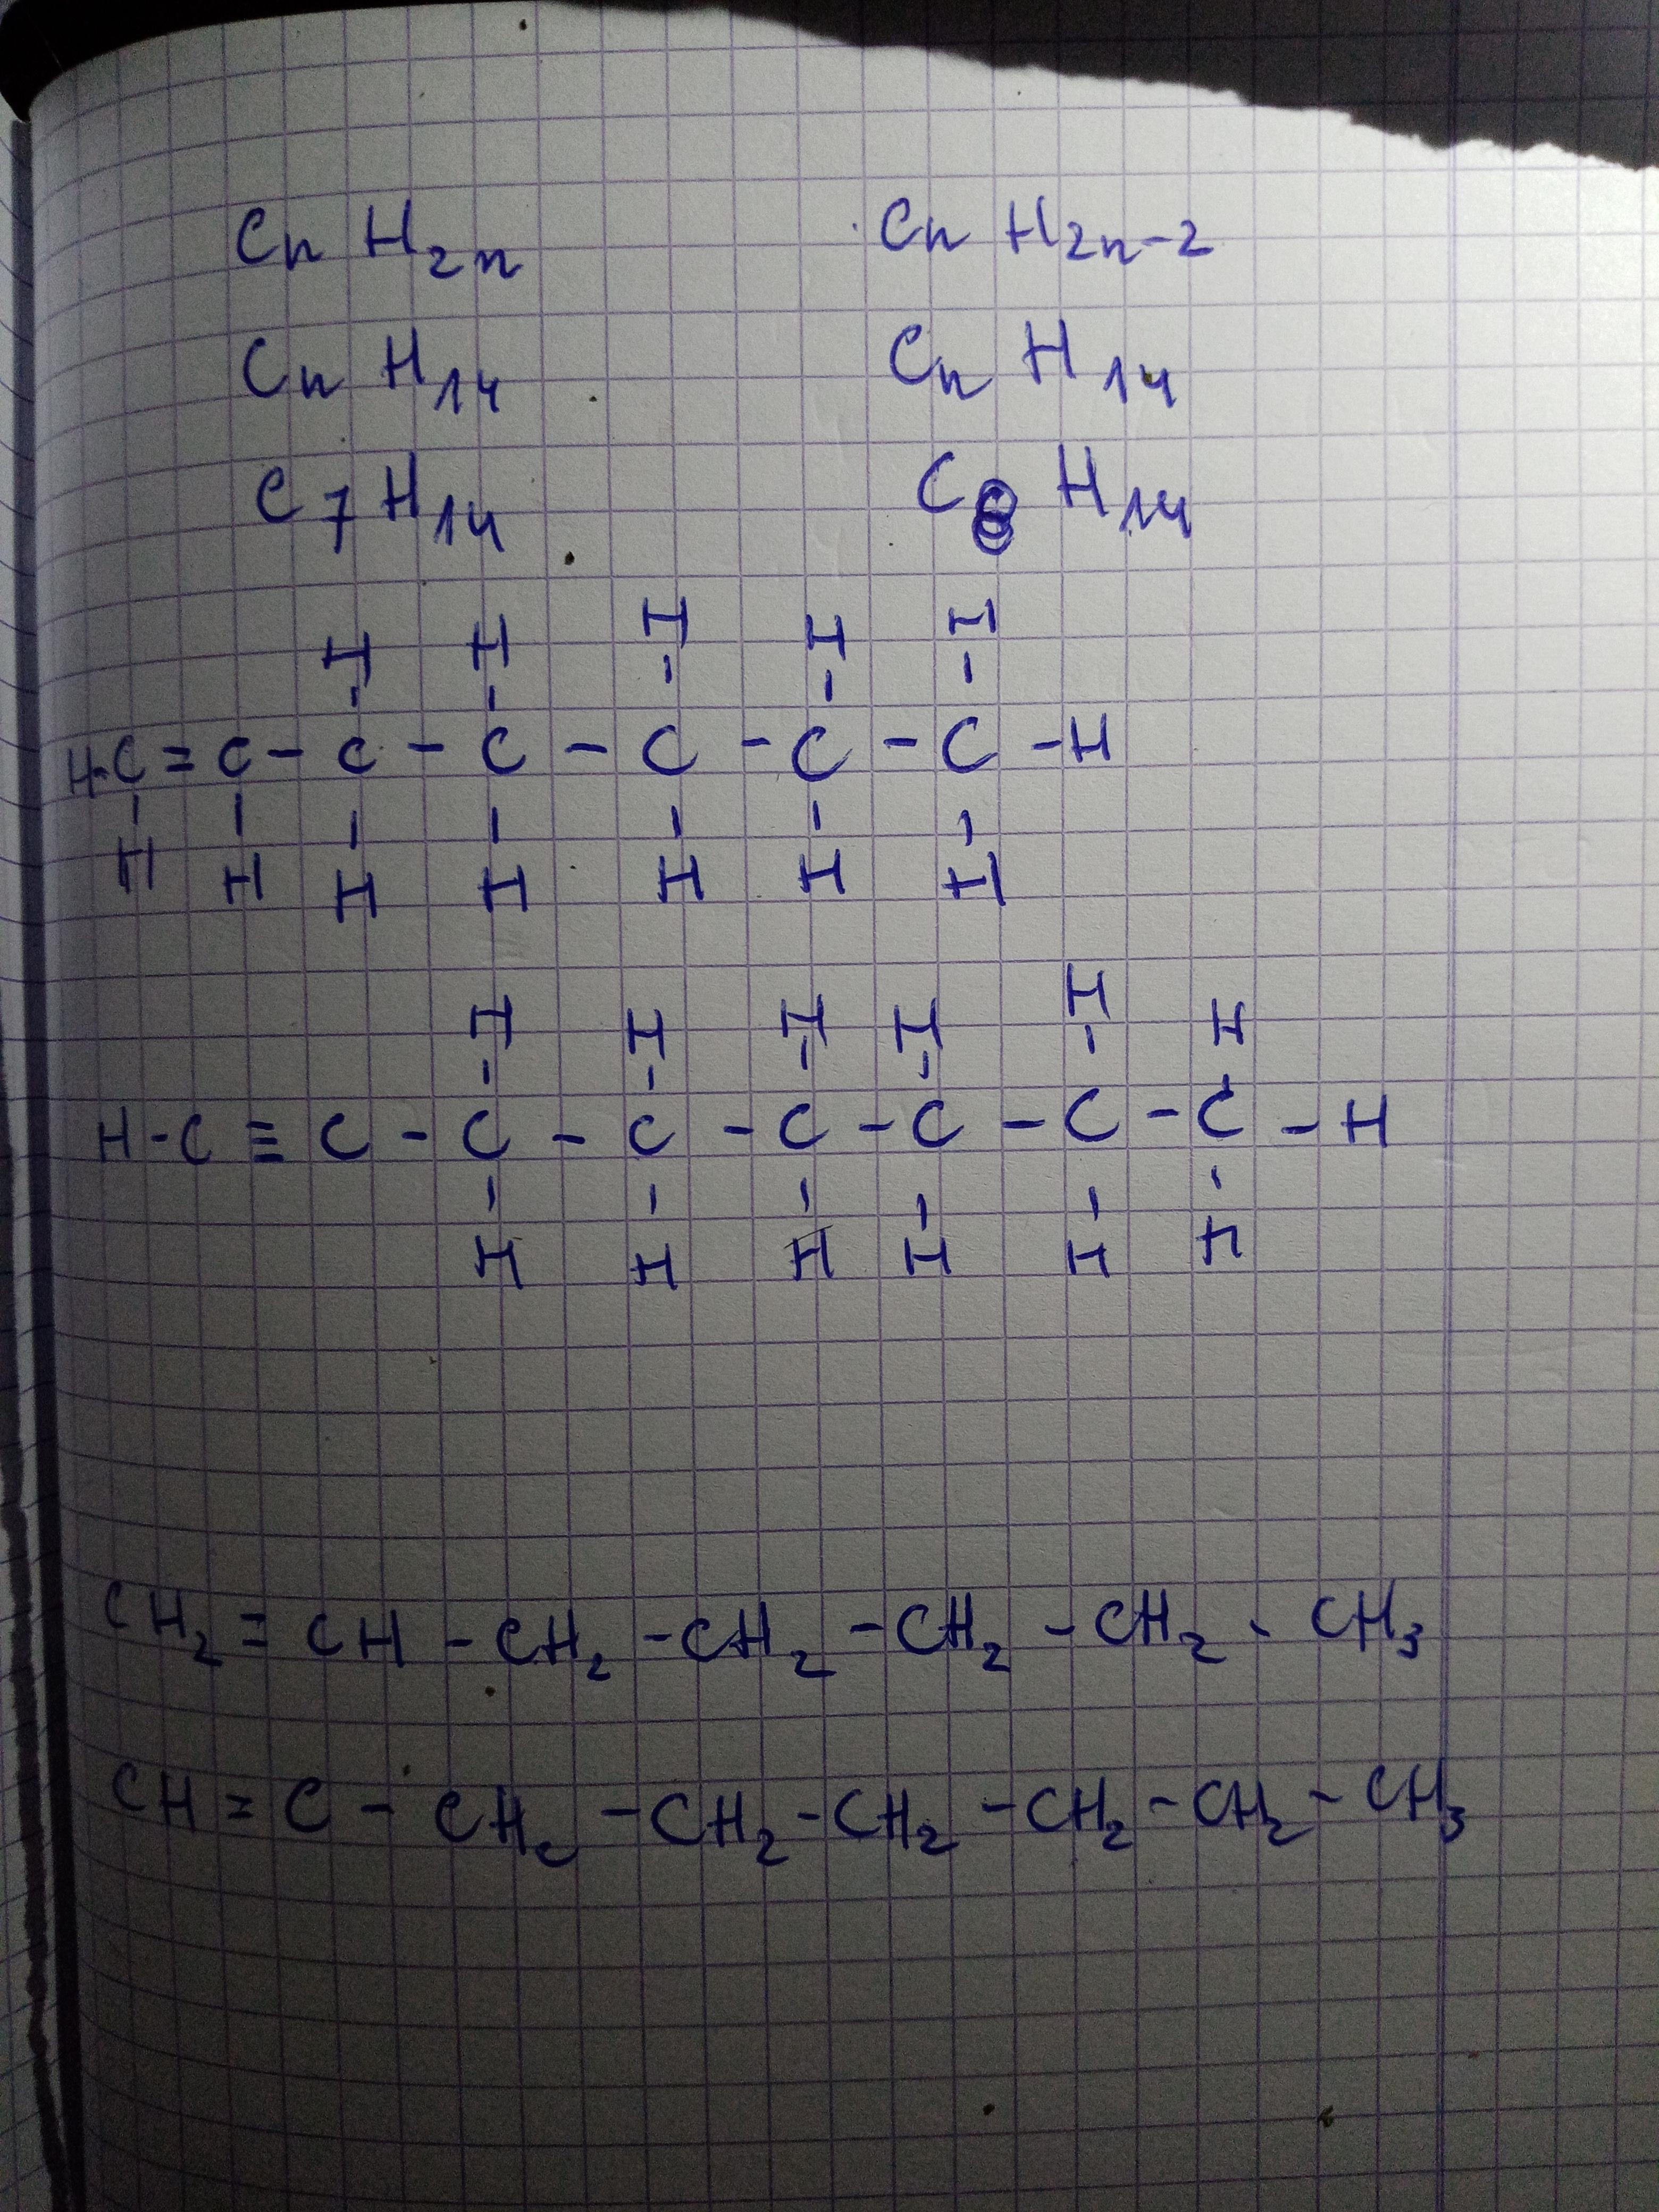 CnH2n CnH2n-2
CnH14 CnH14
C7H14 C8H14
H H H H H
H-C=C-C-C-C-C-C-H
H H H H H H H
H H H H H H
H-C≡C-C-C-C-C-C-C-H
H H H H H H
CH2=CH-CH2-CH2-CH2-CH2-CH3
CH=C-CH2-CH2-CH2-CH2-CH2-CH3